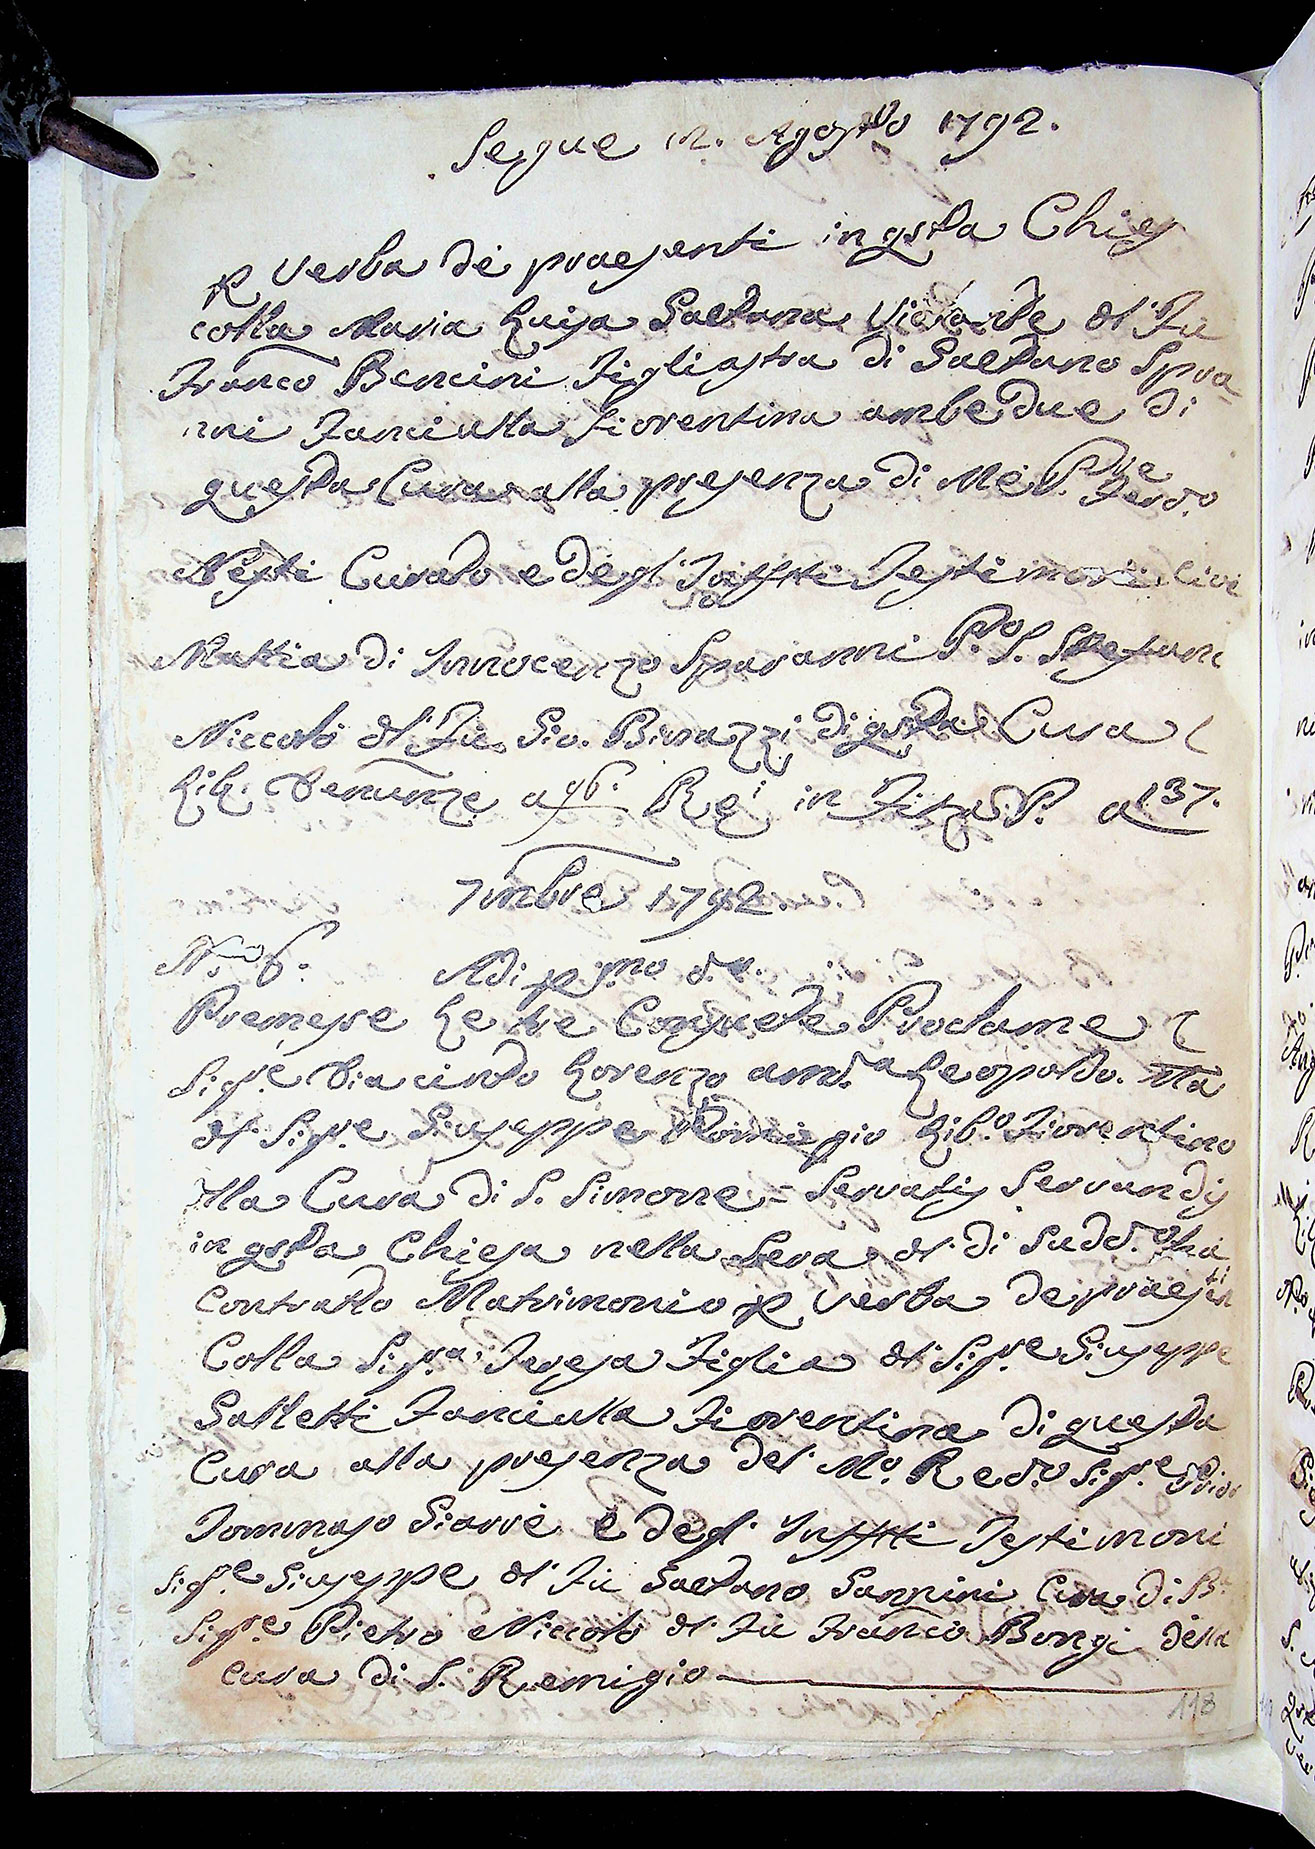 Segue 12. Agosto 1792.
P Verba de praesenti in qsta Chies
colla Maria Luisa Gaetana del Fu
Franco Bencini Figliastra di Gaetano Spara
nni Fanciulla Fiorentina ambedue di
questa Cura alla presenza di Me P. Ferdo
Nesti Curato e degl' Infrtti Testimoni
Mattia di Innocenzo Sparanni Po. S. Stefano
Niccolò dl' Fu Gio. Binazzi di qsta Cura
Lib. Denunze a 96. Rei in Filza P. a 137.
7mbre 1792.
No. 6. Adi pimo do.
Premesse Le tre Consuete Proclame
Sigre Giacinto Lorenzo and.a Leopoldo
dl' Sigre Giuseppe Libo Fiorentino
lla Cura di S. Simone = Servatis Servandis
in qsta Chiesa nella Sera dl' di Sudd.o ha
Contratto Matrimonio P Verba de praesti
Colla Sigra Teresa Figlia dl' Sigre Giuseppe
Galletti Fanciulla Fiorentina di questa
Cura alla presenza del' Mo. Redo Sigre Prior
Tommaso Giarrè e degl' Infrtti Testimoni
Sigre Giuseppe dl' Fu Gaetano Sannini Cura di
Sigre Pietro Niccolò dl' Fu Franco Bongi della
cura di S. Remigio
118